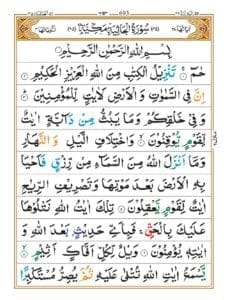 سُوْرَةُ الْجَاثِيَةِ مَكِّيَّةٌ
بِسْمِ اللهِ الرَّحْمٰنِ الرَّحِيْمِ
حٰمٓ تَنْزِيْلُ الْكِتٰبِ مِنَ اللهِ الْعَزِيْزِ الْحَكِيْمِ
اِنَّ فِى السَّمٰوٰتِ وَالْاَرْضِ لَاٰيٰتٍ لِّلْمُؤْمِنِيْنَ
وَفِىْ خَلْقِكُمْ وَمَا يَبُثُّ مِنْ دَآبَّةٍ اٰيٰتٌ
لِّقَوْمٍ يُّوْقِنُوْنَ وَاخْتِلَافِ الَّيْلِ وَالنَّهَارِ
وَمَآ اَنْزَلَ اللهُ مِنَ السَّمَآءِ مِنْ رِّزْقٍ فَاَحْيَا
بِهِ الْاَرْضَ بَعْدَ مَوْتِهَا وَتَصْرِيْفِ الرِّيٰحِ
اٰيٰتٌ لِّقَوْمٍ يَّعْقِلُوْنَ تِلْكَ اٰيٰتُ اللهِ نَتْلُوْهَا
عَلَيْكَ بِالْحَقِّ فَبِاَىِّ حَدِيْثٍۢ بَعْدَ اللهِ وَ
اٰيٰتِهٖ يُؤْمِنُوْنَ وَيْلٌ لِّكُلِّ اَفَّاكٍ اَثِيْمٍ
يَّسْمَعُ اٰيٰتِ اللهِ تُتْلٰى عَلَيْهِ ثُمَّ يُصِرُّ مُسْتَكْبِرًا